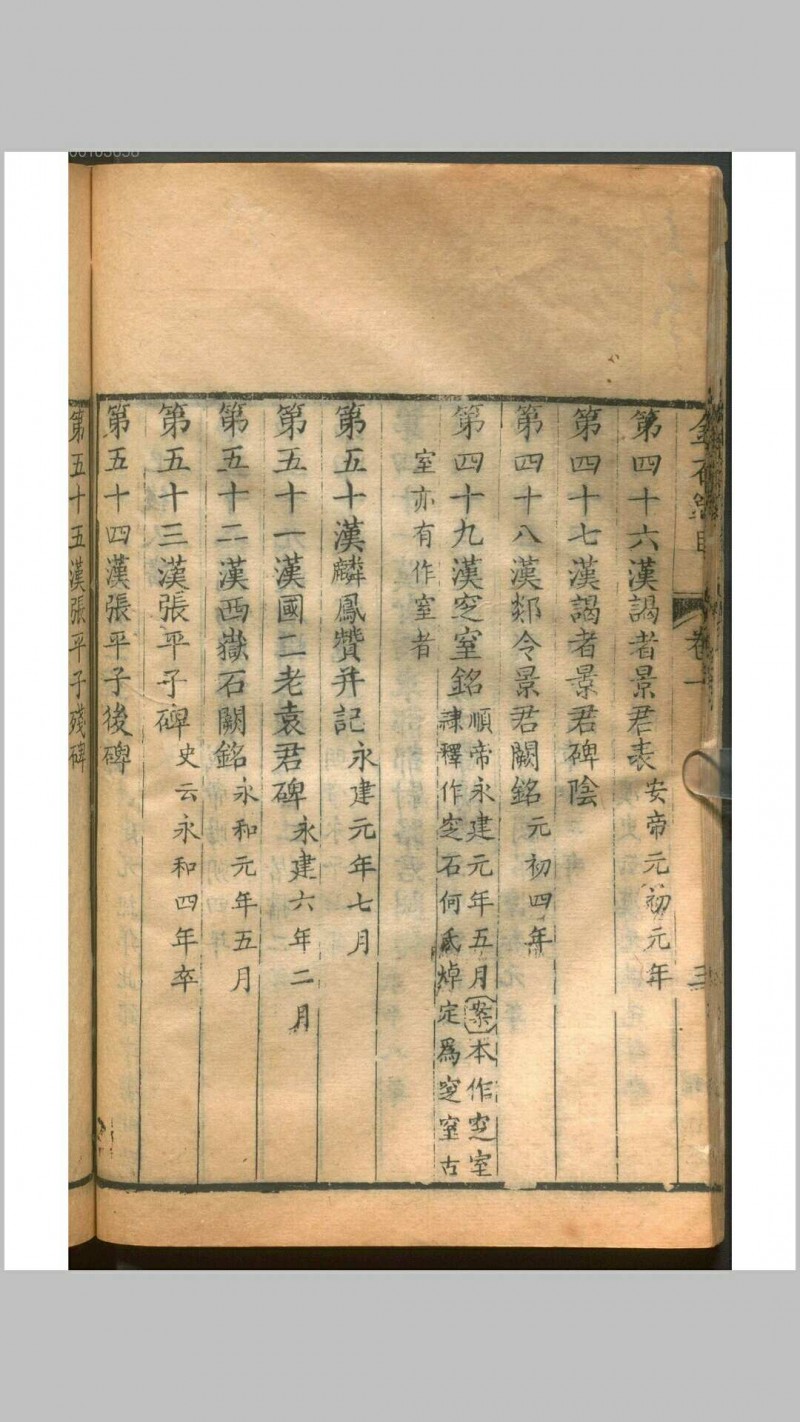 金石錄目 卷一 三
第四十六漢謁者景君表 安帝元初元年
第四十七漢謁者景君碑陰
第四十八漢郯令景君闕銘 元初四年
第四十九漢窆室銘 順帝永建元年五月案本作窆室
隸釋作窆石何氏焯定爲窆窒古
室亦有作窒者
第五十漢麟鳳贊并記 永建元年七月
第五十一漢國三老袁君碑 永建六年二月
第五十二漢西嶽石闕銘 永和元年五月
第五十三漢張平子碑 史云永和四年卒
第五十四漢張平子後碑
第五十五漢張平子殘碑